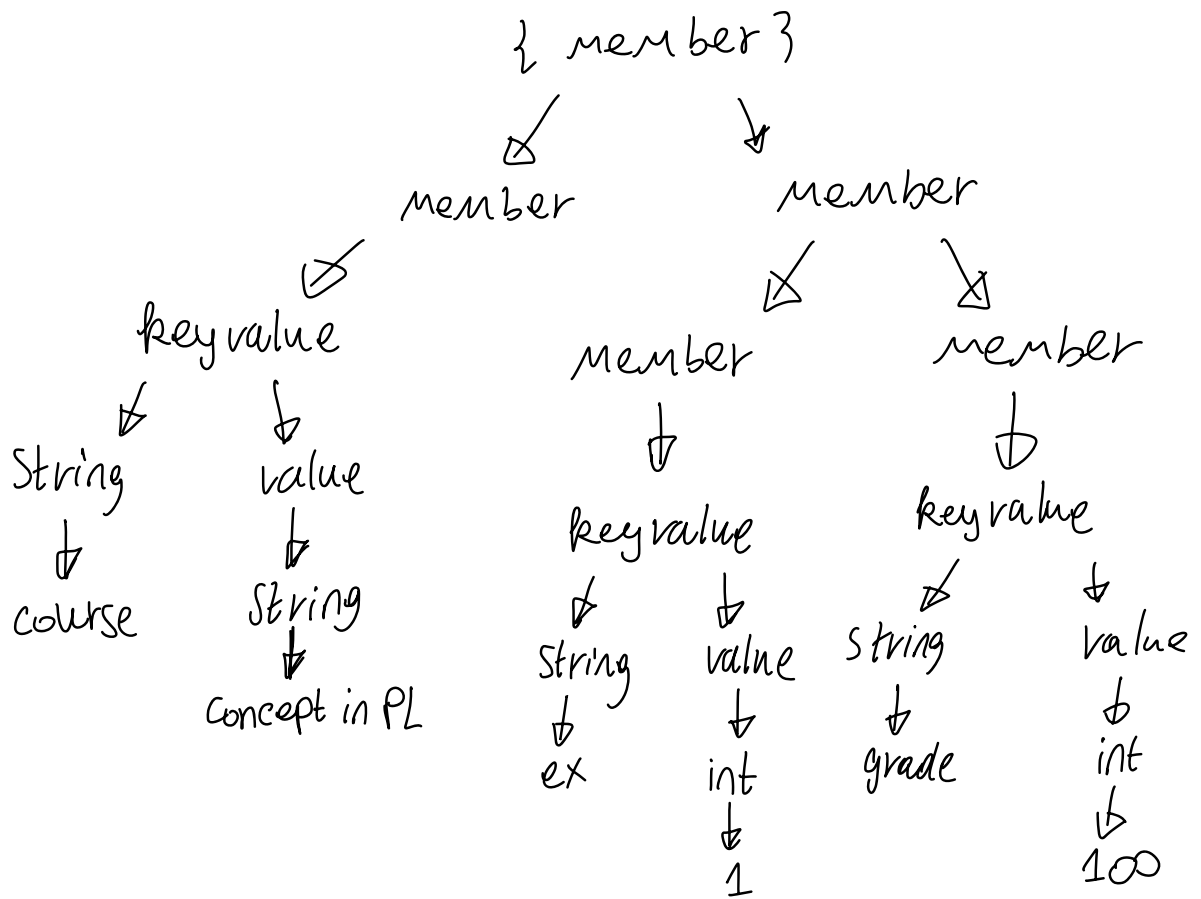 { member }
member member
keyvalue member member
String value keyvalue keyvalue
course String String value string value
concept in PL ex int grade int
1 100